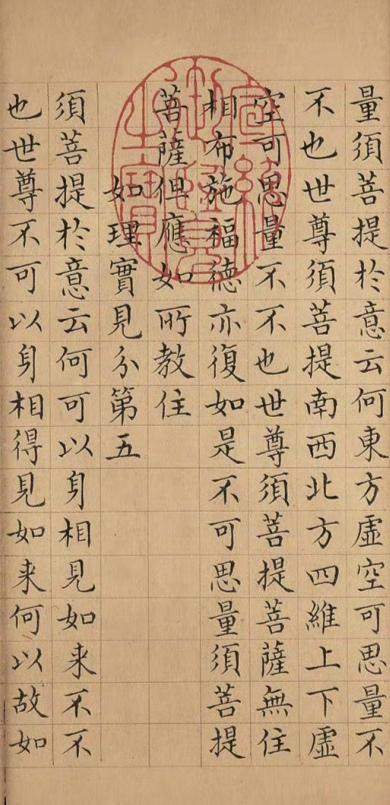 量須菩提於意云何東方虛空可思量不
不也世尊須菩提南西北方四維上下虛
空可思量不不也世尊須菩提菩薩無住
相布施福德亦復如是不可思量須菩提
菩薩但應如所教住
如理實見分第五
須菩提於意云何可以身相見如来不不
也世尊不可以身相得見如来何以故如